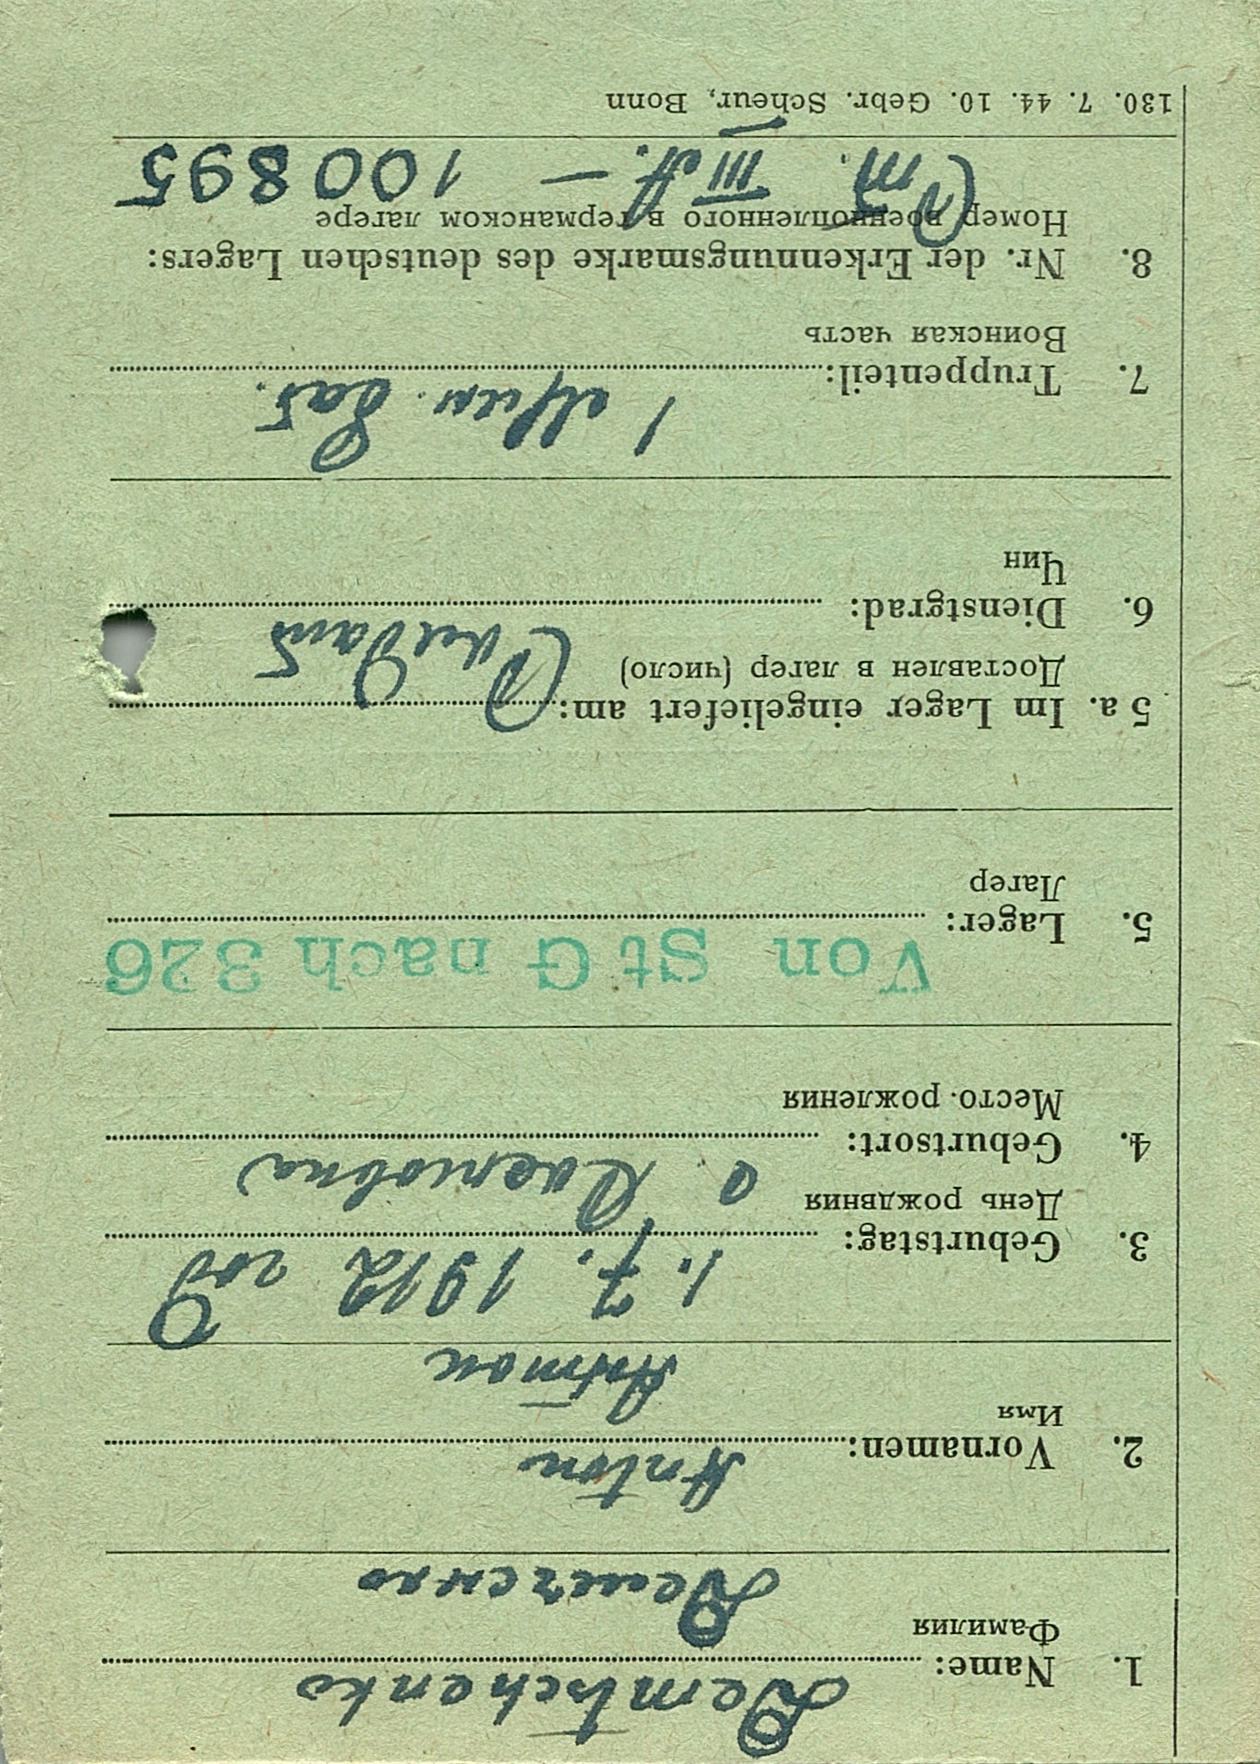 Demtschenko
1. Name:
Фамилия
Демченко
Anton
2. Vornamen:
Имя
Антон
1. 7. 1912 год
3. Geburtstag:
День рождвния
с.
4. Geburtsort:
Место рождения
Von St G nach 326
5. Lager:
Лагер
5 a. Im Lager eingeliefert am:
Доставлен в лагер (число)
Солдат
6. Dienstgrad:
Чин
1 бат.
7. Truppenteil:
Воинская часть
8. Nr. der Erkennungsmarke des deutschen Lagers:
Номер военнопленного в германском лагере
III A. — 100895
130. 7. 44. 10. Gebr. Scheur, Bonn